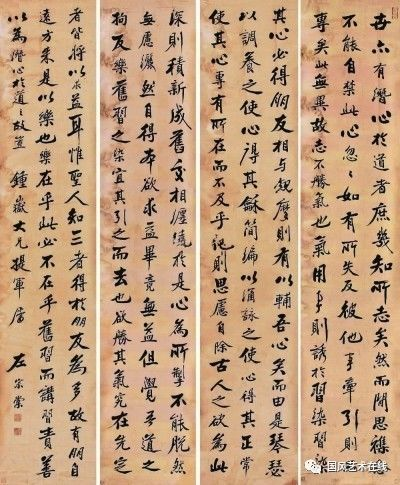 古亦有潛心於道者庶幾知所志矣然而閒思雜
不能自禁此心忽忽如有所失及彼他事牽引則
專矣此無異故志不勝氣也氣用事則誘於習染習染
其心必得朋友相與觀摩則有以輔吾心矣而由是琴瑟
以調養之使心得其龢間編以涵詠之使心得其正常
使其心專有所在而不及乎記則思慮自除古人之欲為此
深則積新成舊交相濡染於是心為所掣不能脫然
無慮灑然自得本欲求益畢竟無益但覺吾道之
拘反樂舊習之染宜其引之而去也欲勝其氣究在先定
者皆將以求益耳惟聖人知三者得於朋友為多故有朋自
遠方來是以樂也樂在乎此必不在乎舊習而講習責善
以為潛心於道之故置 鍾嶽大兄提軍屬 左宗棠
国风艺术在线